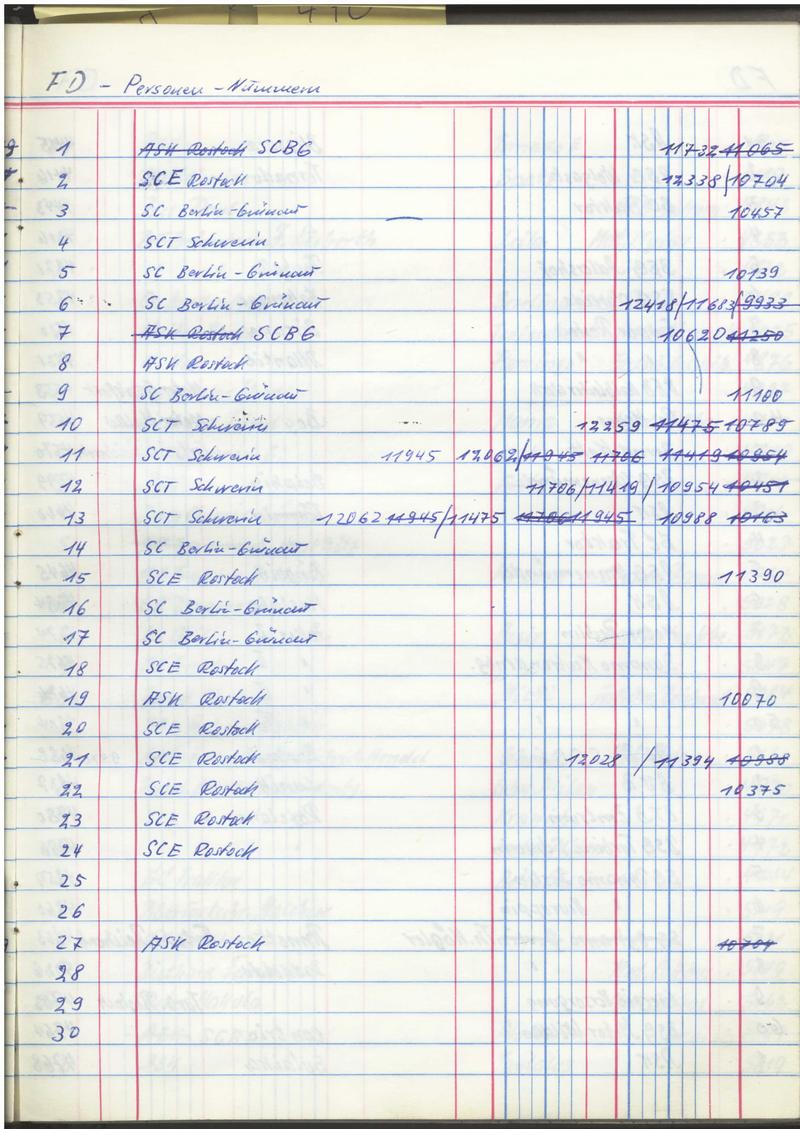 410
FD - Personen-Nummern
1 ASK Rostock SCBG 11732 11065
2 SCE Rostock 12338/10704
3 SC Berlin-Grünau 10457
4 SCT Schwerin
5 SC Berlin-Grünau 10139
6 SC Berlin-Grünau 12418/11683/9933
7 ASK Rostock SCBG 10620 11250
8 ASK Rostock
9 SC Berlin-Grünau 11100
10 SCT Schwerin 12259 11475 10789
11 SCT Schwerin 11945 12062/11945 11706 11419 10954
12 SCT Schwerin 11706/11419/10954 10451
13 SCT Schwerin 12062 11945/11475 11706 11945 10988 10163
14 SC Berlin-Grünau
15 SCE Rostock 11390
16 SC Berlin-Grünau
17 SC Berlin-Grünau
18 SCE Rostock
19 ASK Rostock 10070
20 SCE Rostock
21 SCE Rostock 12028 /11394 10988
22 SCE Rostock 10375
23 SCE Rostock
24 SCE Rostock
25
26
27 ASK Rostock 10704
28
29
30